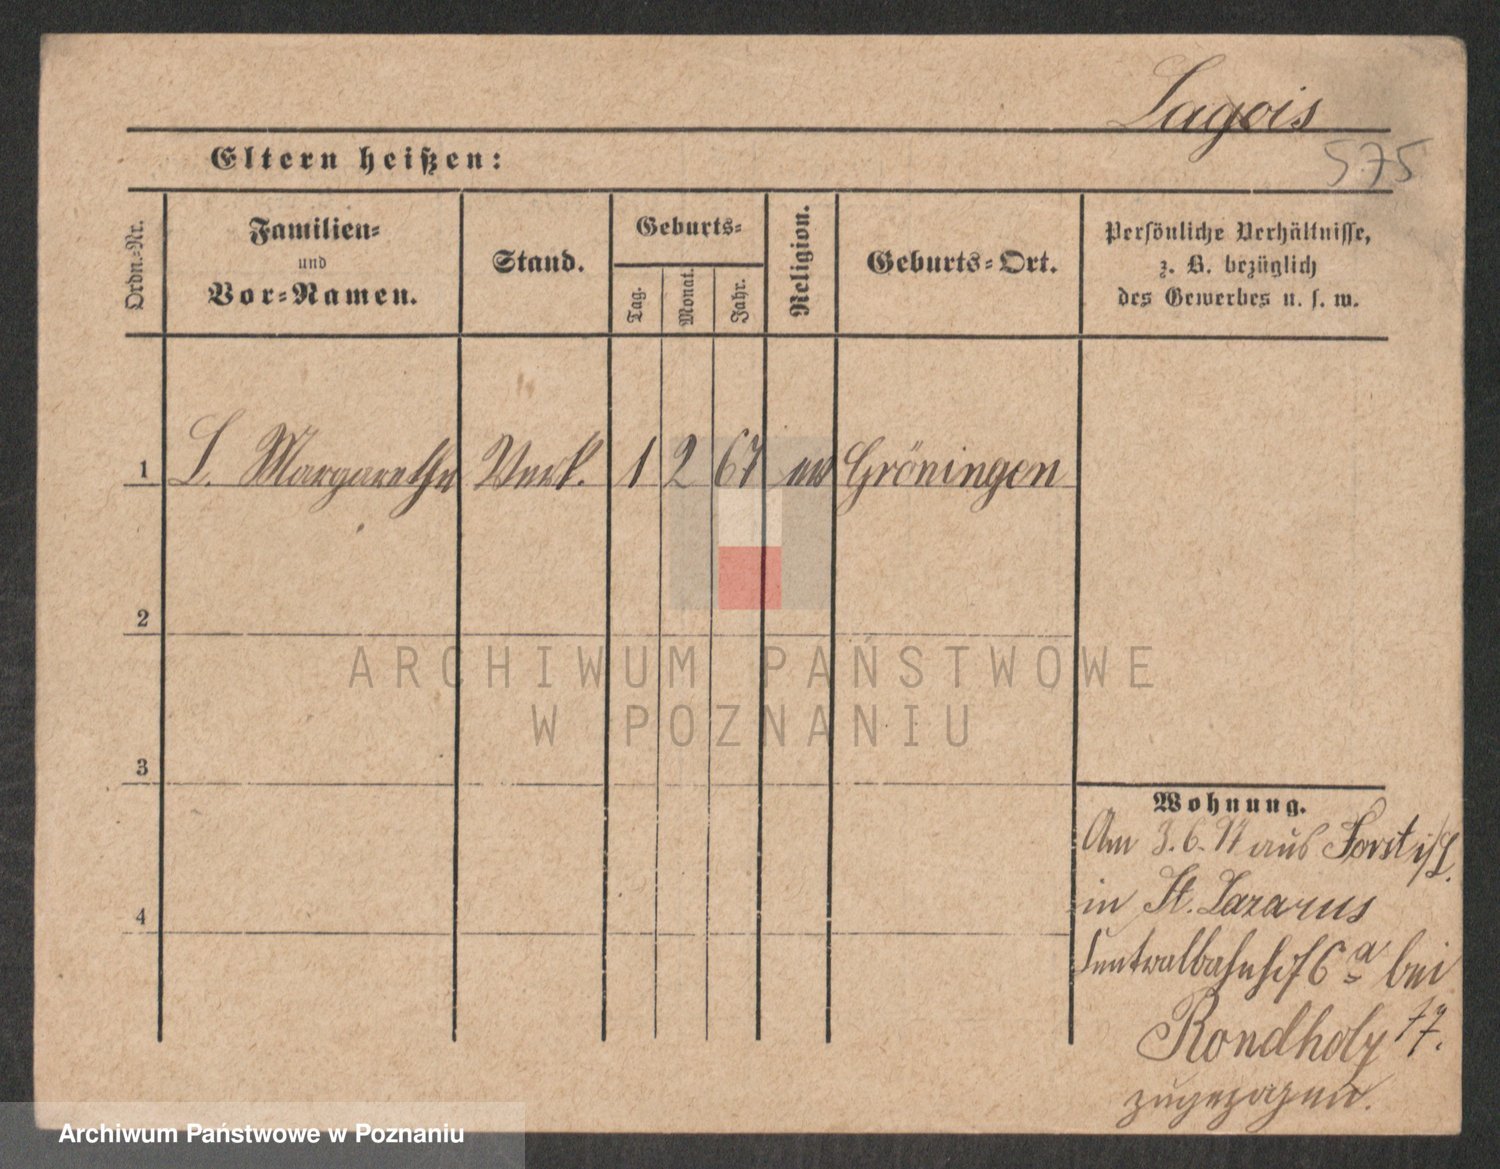 Lagois
575
Eltern heißen:
Ordn.-Nr.
Familien-
und
Vor-Namen.
Stand.
Geburts-
Tag.
Monat.
Jahr.
Religion.
Geburts-Ort.
Persönliche Verhältnisse,
z. B. bezüglich
des Gewerbes u. s. w.
1 L. Margarethe Verk. 1 2 67 ev Gröningen
2
3
4
ARCHIWUM PAŃSTWOWE
W POZNANIU
Wohnung.
Am 3. 6. aus Forst i/L.
in St. Lazarus
Centralbahnhof 6 a bei
Rondholz
zugezogen.
Archiwum Państwowe w Poznaniu